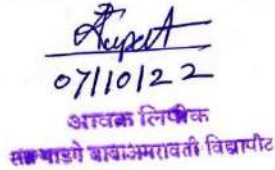 07/10/22
आवक लिपीक
बाबा अमरावती विद्यापीठ